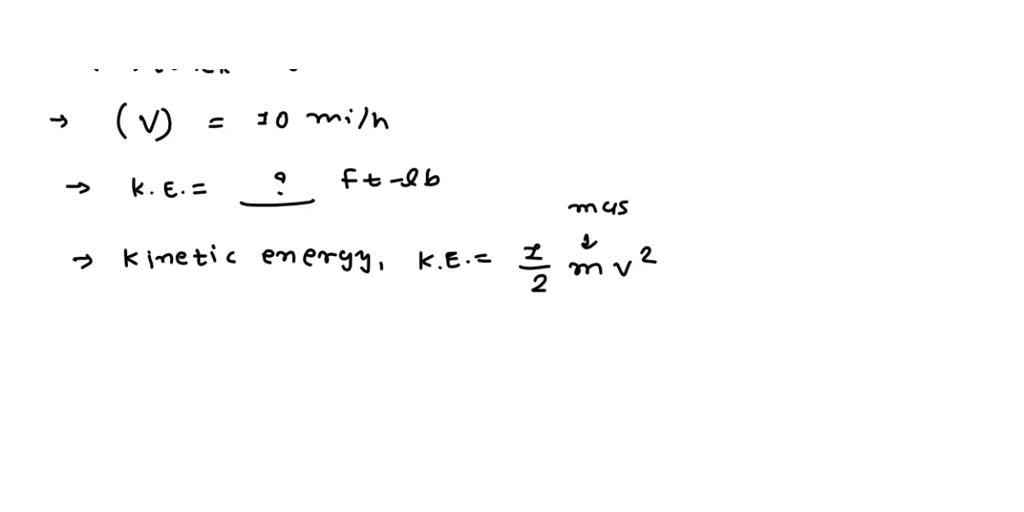 → (V) = 10 mi/h
→ K.E. = ? ft-lb
mas
↓
→ Kinetic energy, K.E. = 1/2 m v²